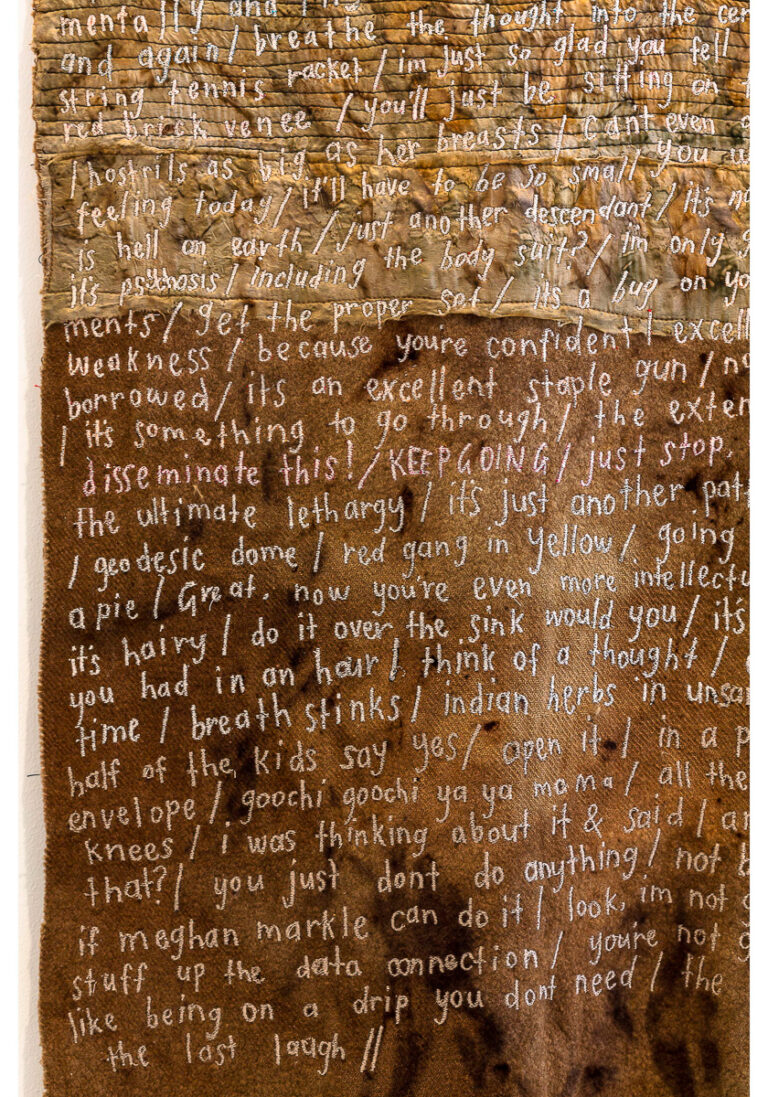 mentally and the thought into the
and again / breathe the thought into the cer
string tennis racket / im just so glad you fell
red brick venee / you'll just be sitting on
/ hostrils as big as her breasts / cant even
feeling today / it'll have to be so small you w
is hell on earth / just another descendant / it's no
it's psychosis / including the body suit? / i'm only g
ments / get the proper set / its a bug on yo
weakness / because you're confident / excell
borrowed / its an excellent staple gun / no
/ it's something to go through / the exten
disseminate this! / KEEP GOING / just stop,
the ultimate lethargy / it's just another pat
/ geodesic dome / red gang in yellow / going
a pie / Great, now you're even more intellectu
it's hairy / do it over the sink would you / it's
you had in an hour / think of a thought /
time / breath stinks / indian herbs in unsa
half of the kids say yes / open it / in a p
envelope / goochi goochi ya ya mama / all the
knees / i was thinking about it & said / a
that? / you just dont do anything / not b
if meghan markle can do it / look, im not g
stuff up the data connection / you're not g
like being on a drip you dont need / the
the last laugh //